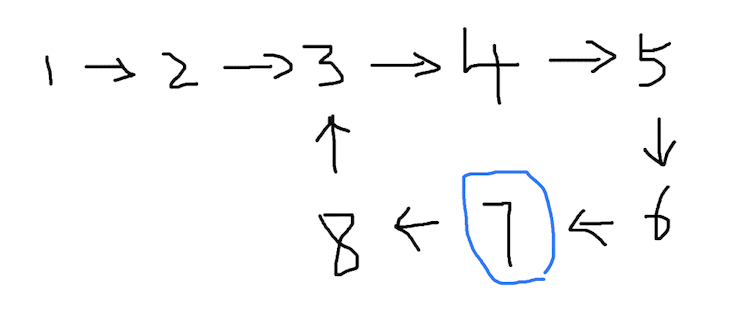 1 → 2 → 3 → 4 → 5
↑ ↓
8 ← 7 ← 6